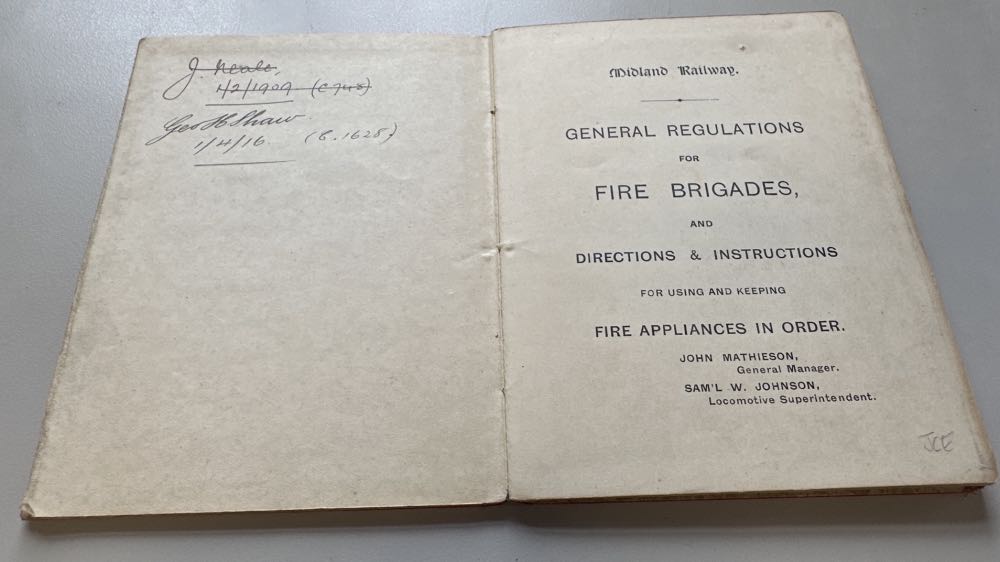 J. Neale,
1/2/1909 (C 748)
Geo H Shaw.
1/4/16. (C. 1628)
Midland Railway.
GENERAL REGULATIONS
FOR
FIRE BRIGADES,
AND
DIRECTIONS & INSTRUCTIONS
FOR USING AND KEEPING
FIRE APPLIANCES IN ORDER.
JOHN MATHIESON,
General Manager.
SAM'L W. JOHNSON,
Locomotive Superintendent.
JCE